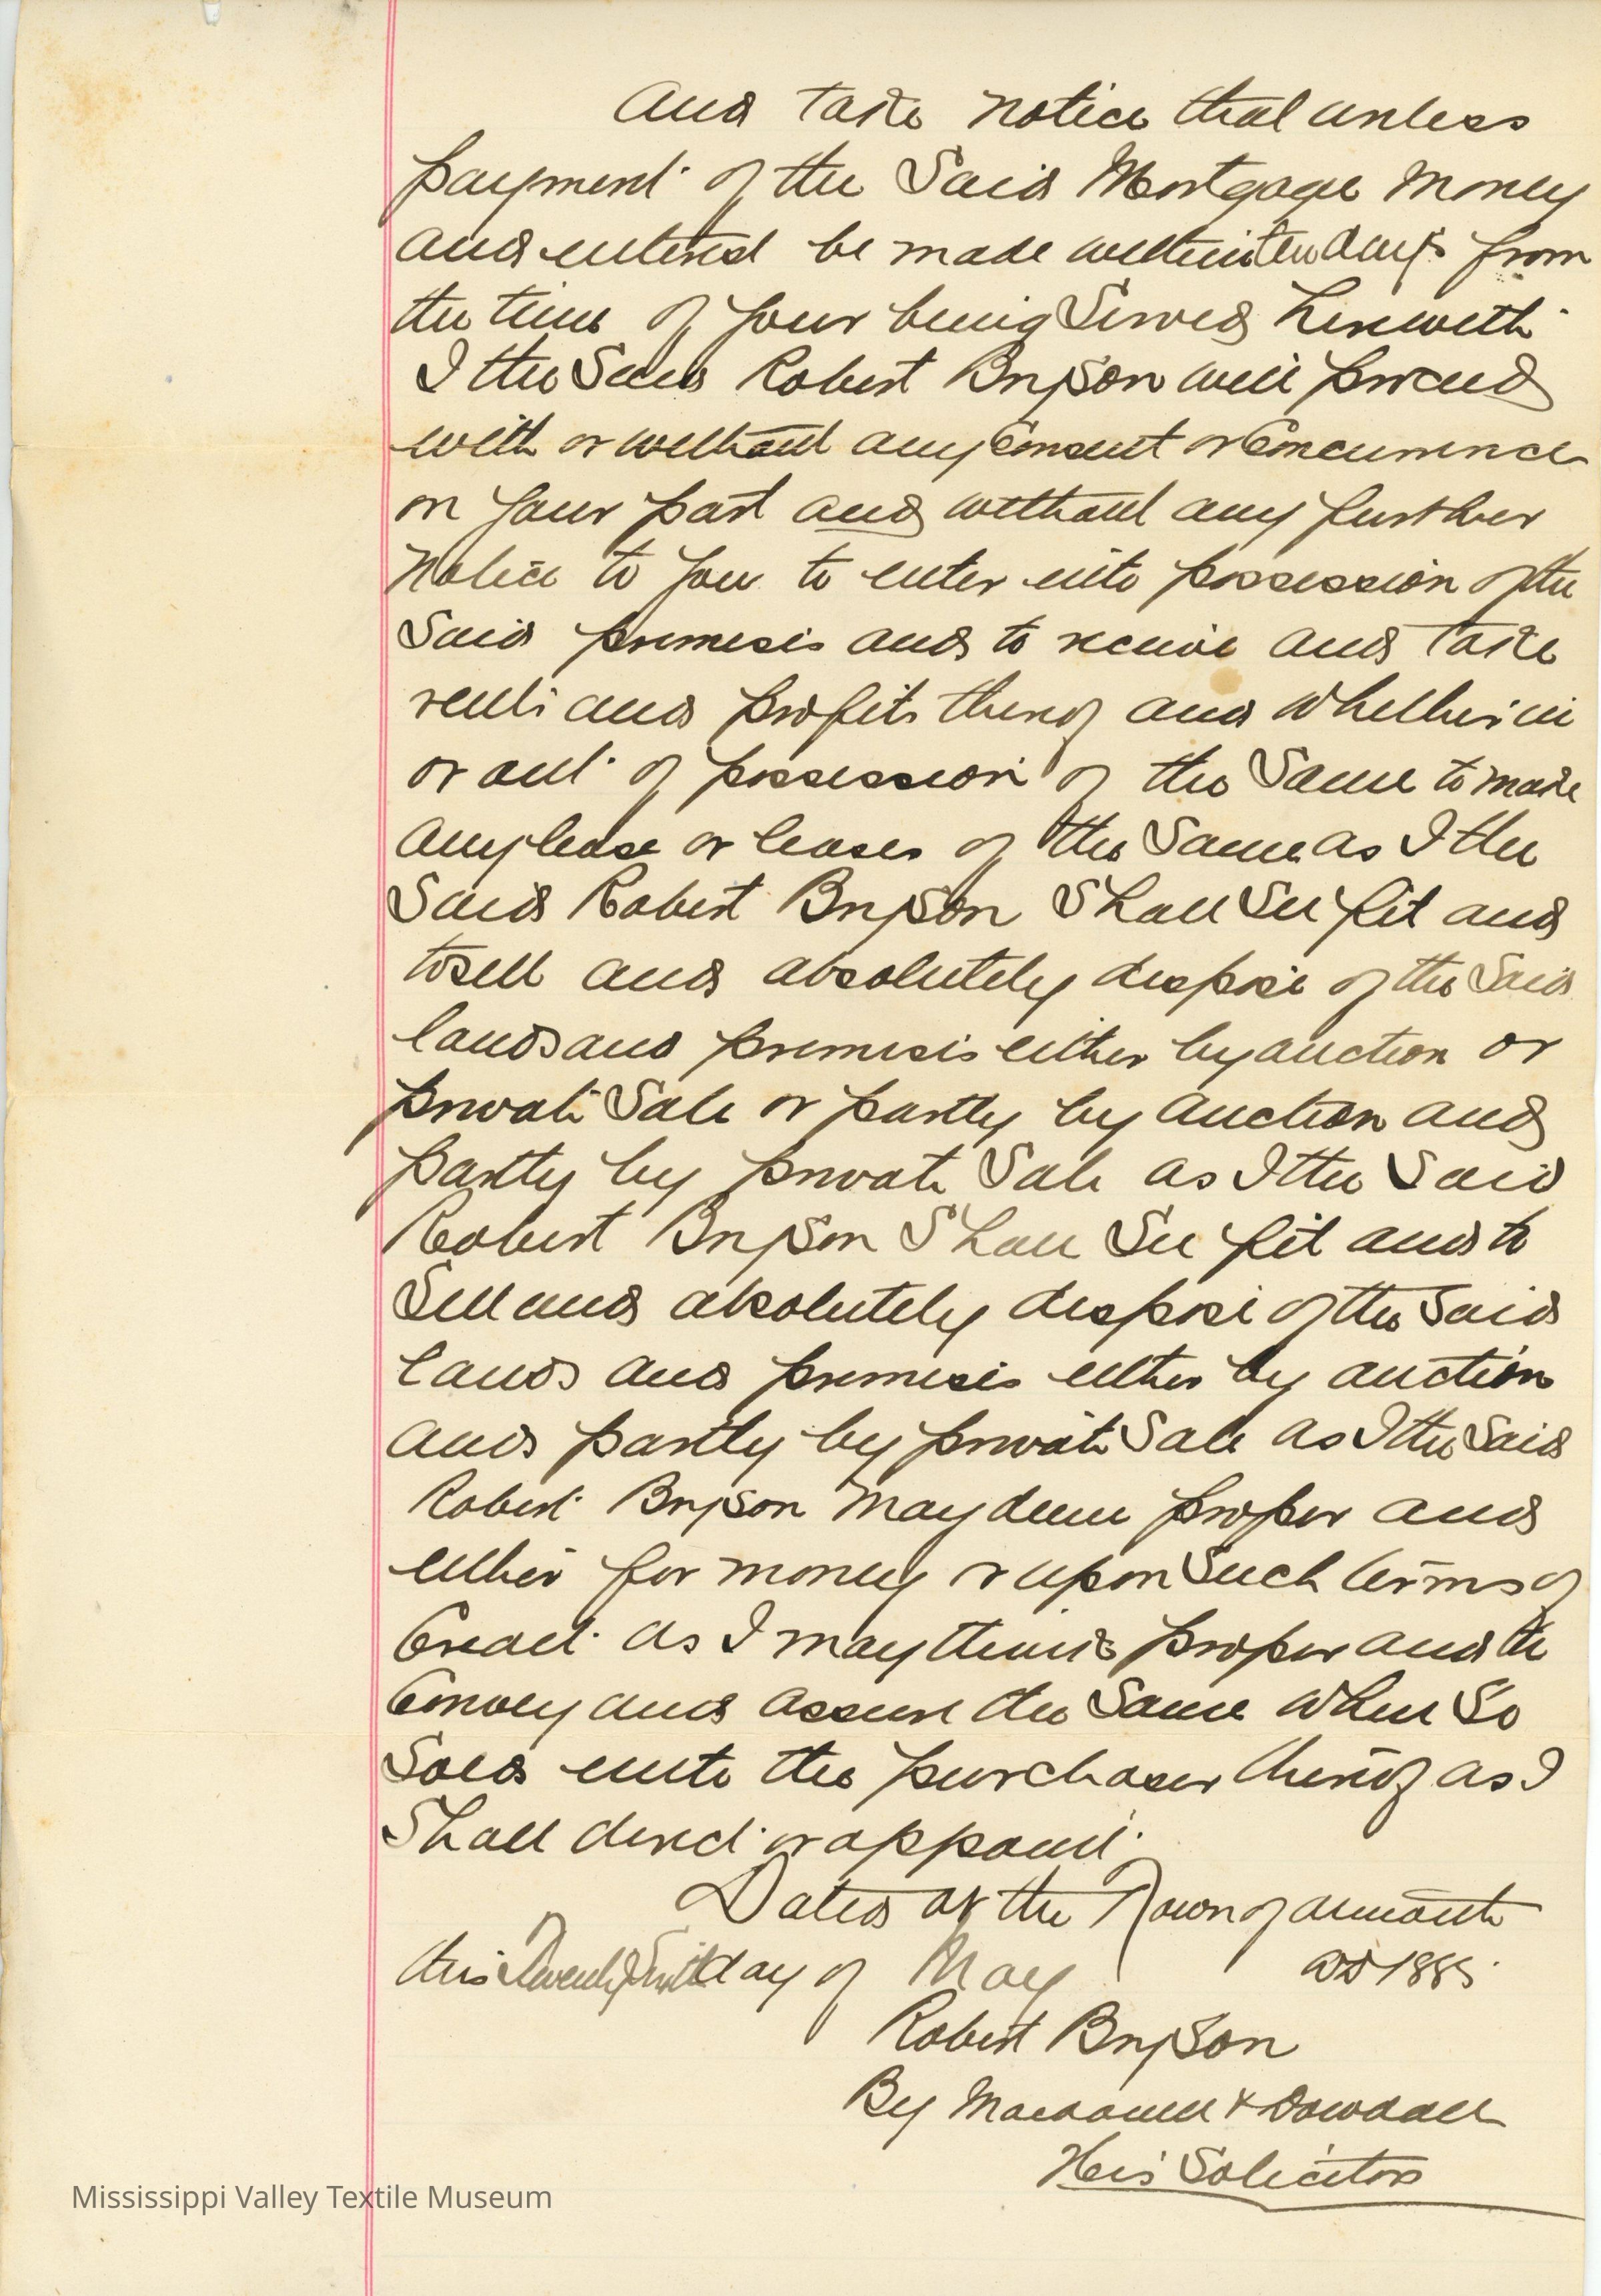 And take notice that unless
payment of the Said Mortgage Money
and interest be made within ten days from
the time of your being Served herewith
I the Said Robert Bryson will proceed
with or without any Consent or Concurrence
on your part and without any further
Notice to you to enter into possession of the
Said premises and to receive and take
rents and profits thereof and whether in
or out of possession of the Same to make
any lease or leases of the Same as I the
Said Robert Bryson Shall See fit and
to sell and absolutely dispose of the Said
lands and premises either by auction or
private Sale or partly by auction and
partly by private Sale as I the Said
Robert Bryson Shall See fit and to
Sell and absolutely dispose of the Said
lands and premises either by auction
and partly by private Sale as I the Said
Robert Bryson May deem proper and
either for money or upon Such terms of
Credit as I may think proper and to
Convey and assure the Same when So
Sold unto the purchaser thereof as I
Shall direct or appoint
Dated at the Town of Almonte
this Twenty day of May AD 1885
Robert Bryson
By Macdonell & Dowdall
His Solicitors
Mississippi Valley Textile Museum